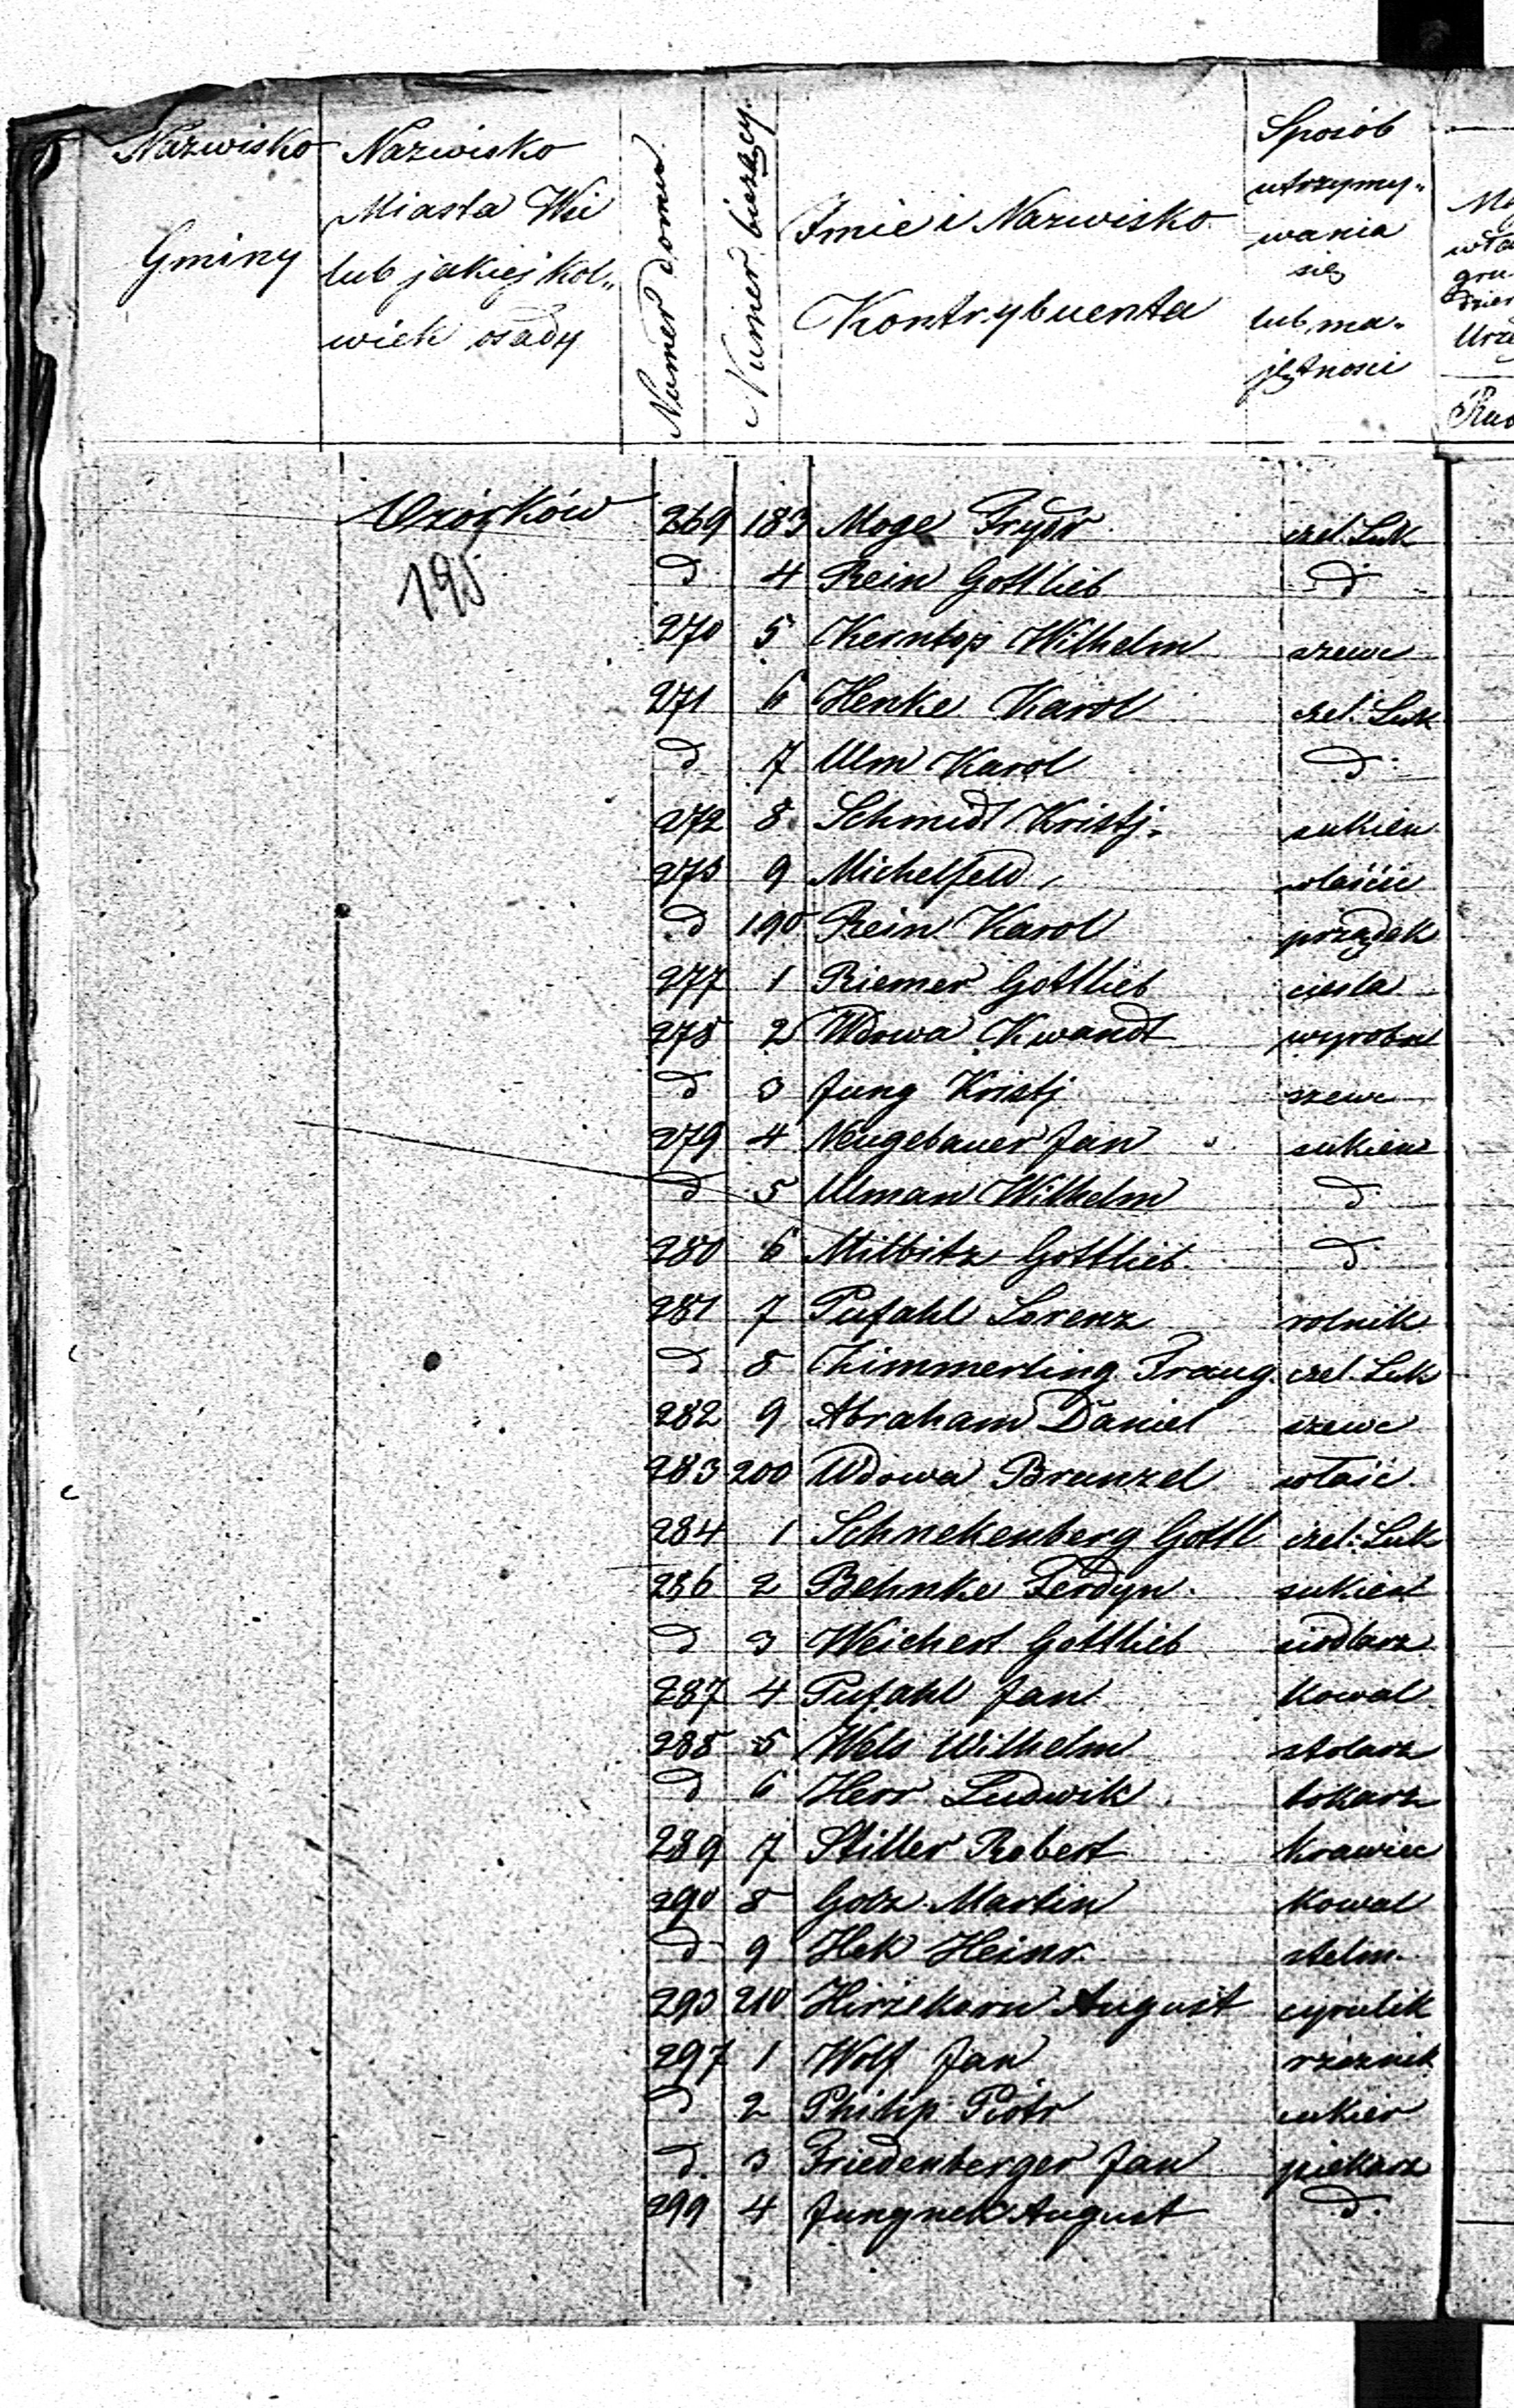 Nazwisko Gminy
Nazwisko Miasta Wsi lub jakiej kol„ wiek osady
Numer domu
Numer bieżący.
Imie i Nazwisko Kontrybuenta
Sposób utrzymy„ wania się lub ma„ jętności
Ozorków
195
269 183 Moge Frydr czel. Suk
d 4 Rein Gottlieb d
270 5 Kerntop Wilhelm szewc
271 6 Henke Karol czel. Suk
d 7 Ulm Karol d
272 8 Schmidt Kristj. sukien
273 9 Michelfeld właścic
d 190 Rein Karol prządek
277 1 Riemer Gottlieb ciesla
278 2 Wdowa Kwandt wyrobn
d 3 Jung Kristj szewc
279 4 Neugebauer Jan sukien
d 5 Ulman Wilhelm d
280 6 Milbitz Gottlieb d
281 7 Pufahl Lorenz rolnik
d 8 Zimmerling Traug. czel. Suk
282 9 Abraham Daniel szewc
283 200 Wdowa Brunzel właśc.
284 1 Schnekenberg Gottl czel. Suk
286 2 Behnke Ferdyn. sukien
d 3 Weichert Gottlieb siodlarz
287 4 Pufahl Jan Kowal
288 5 Wels Wilhelm stolarz
d 6 Herr Ludwik tokarz
289 7 Stiller Robert Krawiec
290 8 Golz Martin Kowal
d 9 Hek Heinr. stelm.
293 210 Hirzekorn August cyrulik
297 1 Wolf Jan rzeznik
d 2 Philip Piotr cukier
d. 3 Friedenberger Jan piekarz
299 4 Jungnek August d.